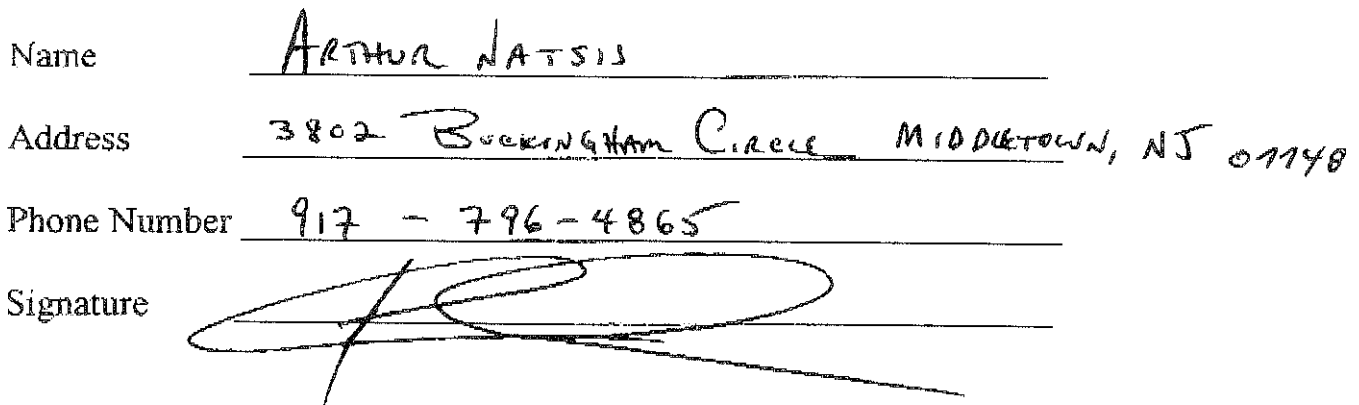 Name ARTHUR NATSIS
Address 3802 BUCKINGHAM CIRCLE MIDDLETOWN, NJ 07748
Phone Number 917 - 796-4865
Signature